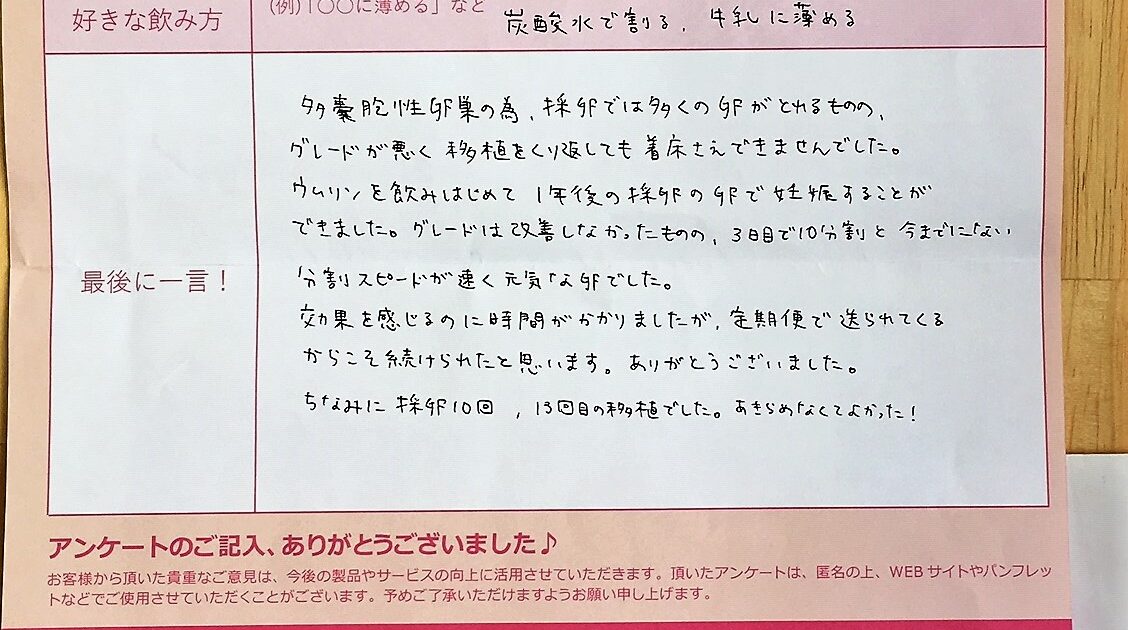 (例)「〇〇に薄める」など
好きな飲み方
炭酸水で割る、牛乳に薄める
多嚢胞性卵巣の為、採卵では多くの卵がとれるものの、
グレードが悪く移植をくり返しても着床さえできませんでした。
ウムリンを飲みはじめて1年後の採卵の卵で妊娠することが
できました。グレードは改善しなかったものの、3日目で10分割と今までにない
最後に一言！
分割スピードが速く元気な卵でした。
効果を感じるのに時間がかかりましたが、定期便で送られてくる
からこそ続けられたと思います。ありがとうございました。
ちなみに採卵10回、13回目の移植でした。あきらめなくてよかった！
アンケートのご記入、ありがとうございました♪
お客様から頂いた貴重なご意見は、今後の製品やサービスの向上に活用させていただきます。頂いたアンケートは、匿名の上、WEBサイトやパンフレッ
トなどでご使用させていただくことがございます。予めご了承いただけますようお願い申し上げます。